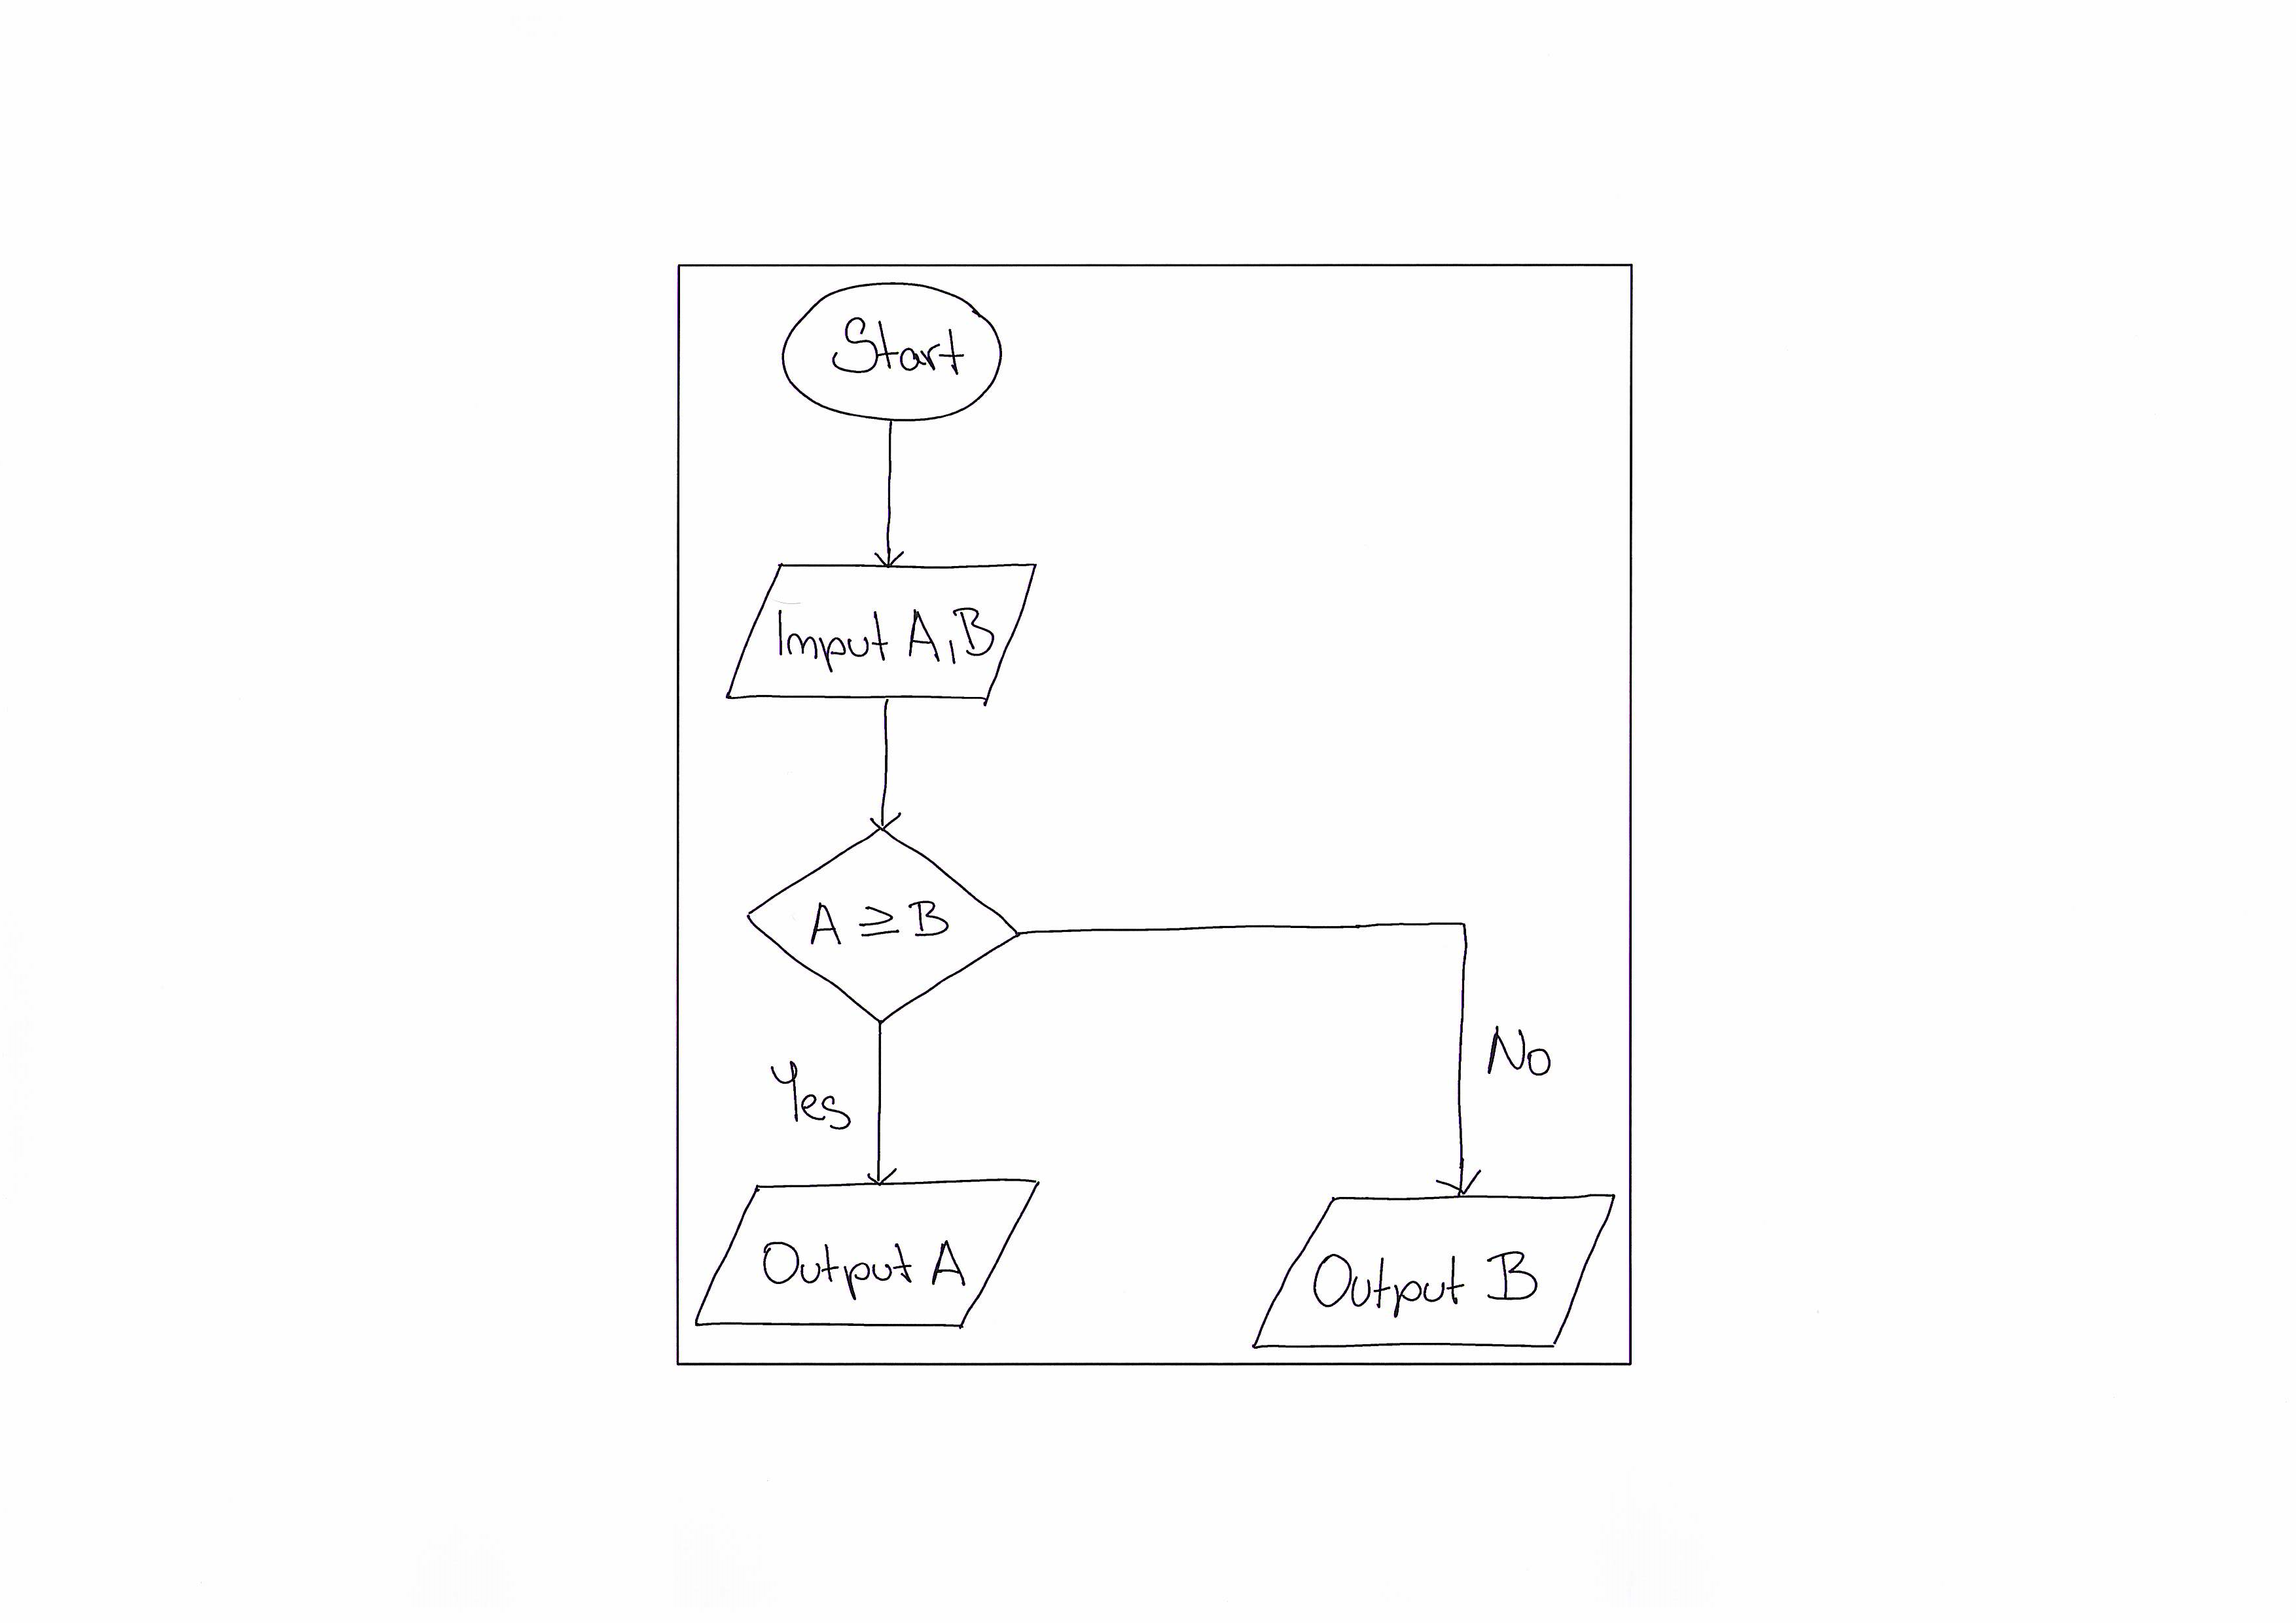 Start
Input A,B
A ≥ B
Yes
No
Output A
Output B